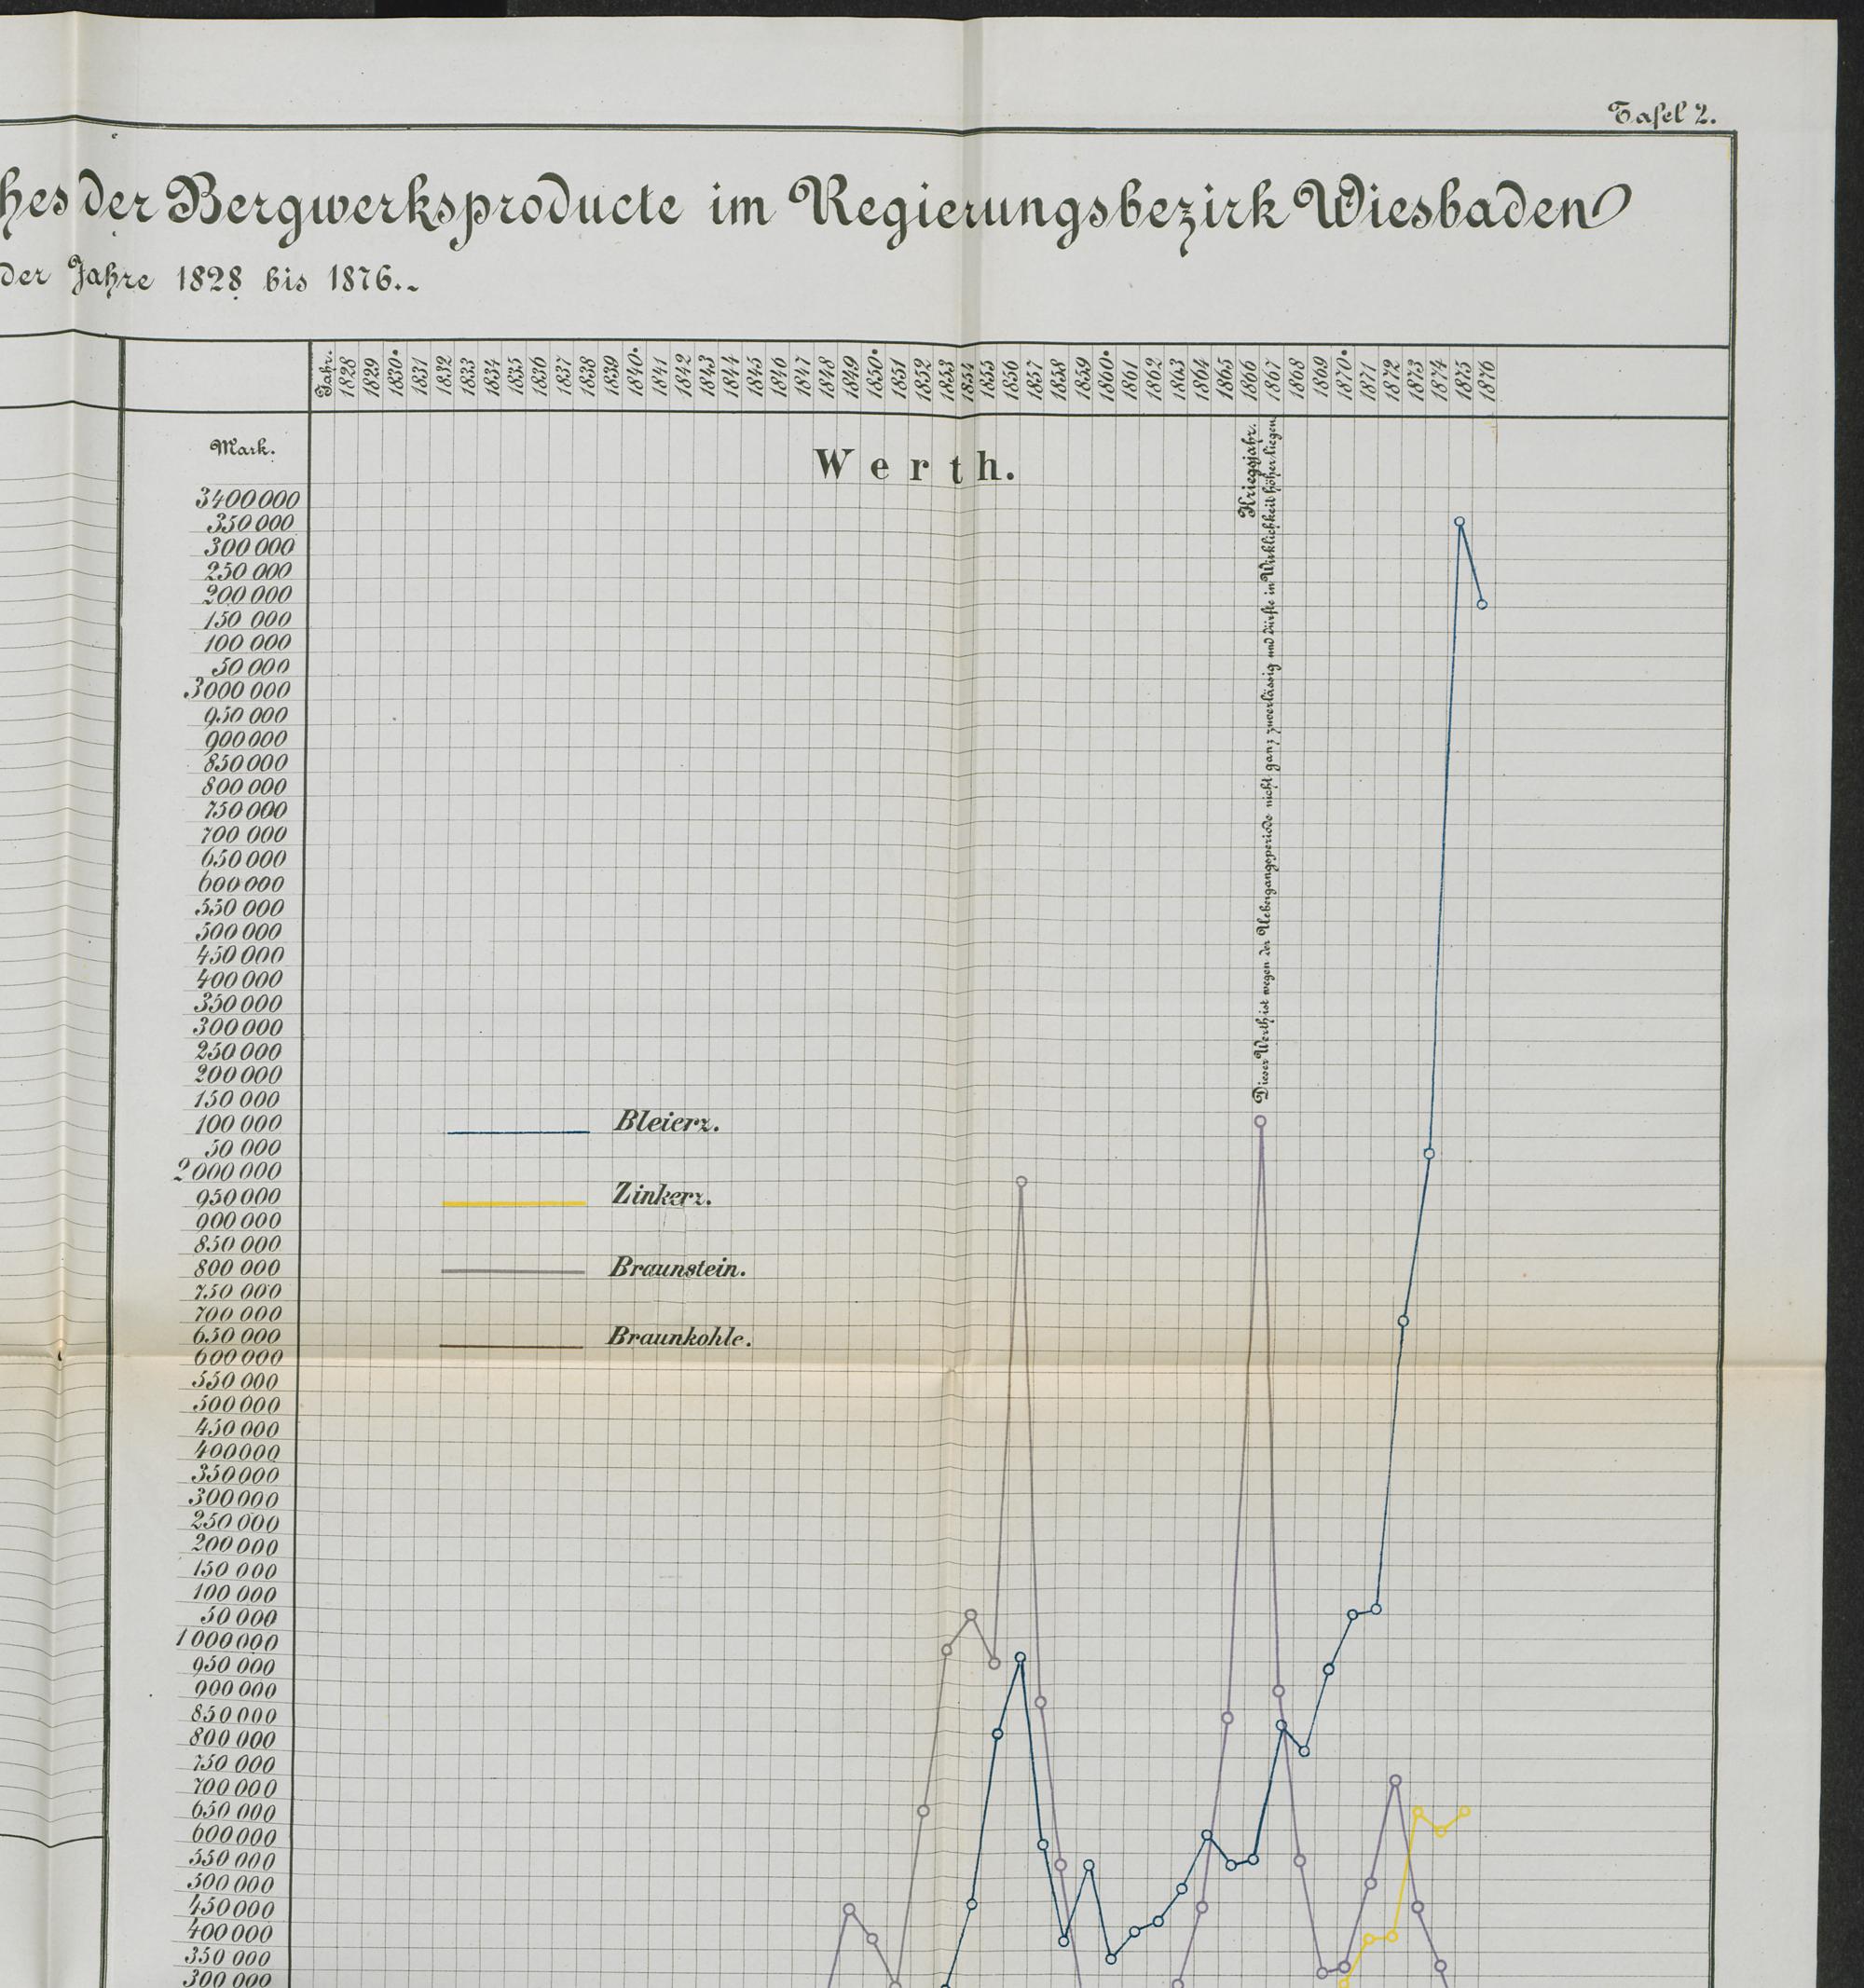 Tafel 2.
hes der Bergwerksproducte im Regierungsbezirk Wiesbaden
der Jahre 1828 bis 1876.
Jahr. 1828 1829 1830. 1831 1832 1833 1834 1835 1836 1837 1838 1839 1840. 1841 1842 1843 1844 1845 1846 1847 1848 1849 1850. 1851 1852 1853 1854 1855 1856 1857 1858 1859 1860. 1861 1862 1863 1864 1865 1866 1867 1868 1869 1870. 1871 1872 1873 1874 1875 1876
Mark.
Werth.
Kriegsjahr.
Dieser Werth ist wegen der Uebergangsperiode nicht ganz zuverlässig und dürfte in Wirklichkeit höher liegen
3400000
350 000
300 000
250 000
200 000
150 000
100 000
50 000
3000 000
950 000
900 000
850 000
800 000
750 000
700 000
650 000
600 000
550 000
500 000
450 000
400 000
350 000
300 000
250 000
200 000
150 000
100 000
50 000
2000 000
950 000
900 000
850 000
800 000
750 000
700 000
650 000
600 000
550 000
500 000
450 000
400000
350 000
300 000
250 000
200 000
150 000
100 000
50 000
1000 000
950 000
900 000
850 000
800 000
750 000
700 000
650 000
600 000
550 000
500 000
450 000
400 000
350 000
300 000
Bleierz.
Zinkerz.
Braunstein.
Braunkohle.